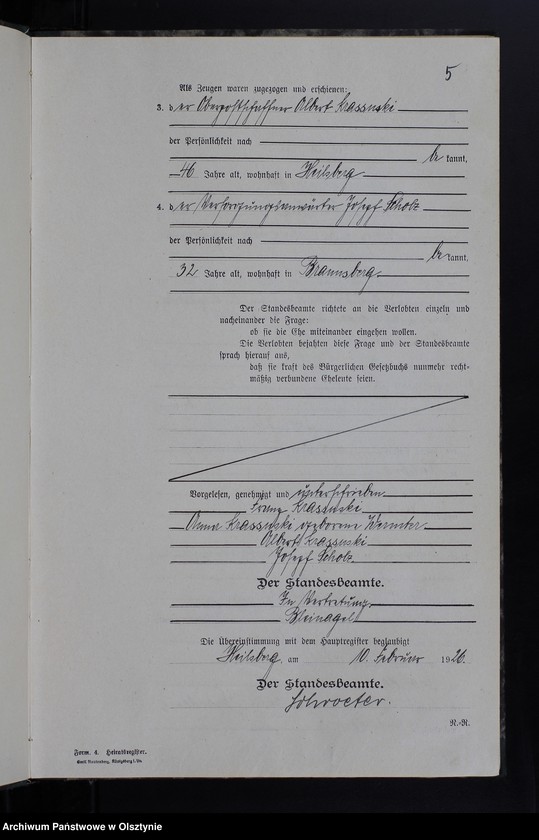 5
Als Zeugen waren zugezogen und erschienen:
3. der Oberpostschaffner Albert Krassuski
der Persönlichkeit nach
bekannt,
46 Jahre alt, wohnhaft in Heilsberg
4. der Versorgungsanwärter Josef Scholz
der Persönlichkeit nach
bekannt,
32 Jahre alt, wohnhaft in Braunsberg.
Der Standesbeamte richtete an die Verlobten einzeln und
nacheinander die Frage:
ob sie die Ehe miteinander eingehen wollen.
Die Verlobten bejahten diese Frage und der Standesbeamte
sprach hierauf aus,
daß sie kraft des Bürgerlichen Gesetzbuchs nunmehr recht-
mäßig verbundene Eheleute seien.
Vorgelesen, genehmigt und unterschrieben
Franz Krassuski
Anna Krassuski geborene
Albert Krassuski
Josef Scholz
Der Standesbeamte.
In Vertretung.
Bleinagel
Die Übereinstimmung mit dem Hauptregister beglaubigt
Heilsberg, am 10. Februar 1926.
Der Standesbeamte.
Schroeter.
N.-R.
Form. 4. Heiratsregister.
Archiwum Państwowe w Olsztynie